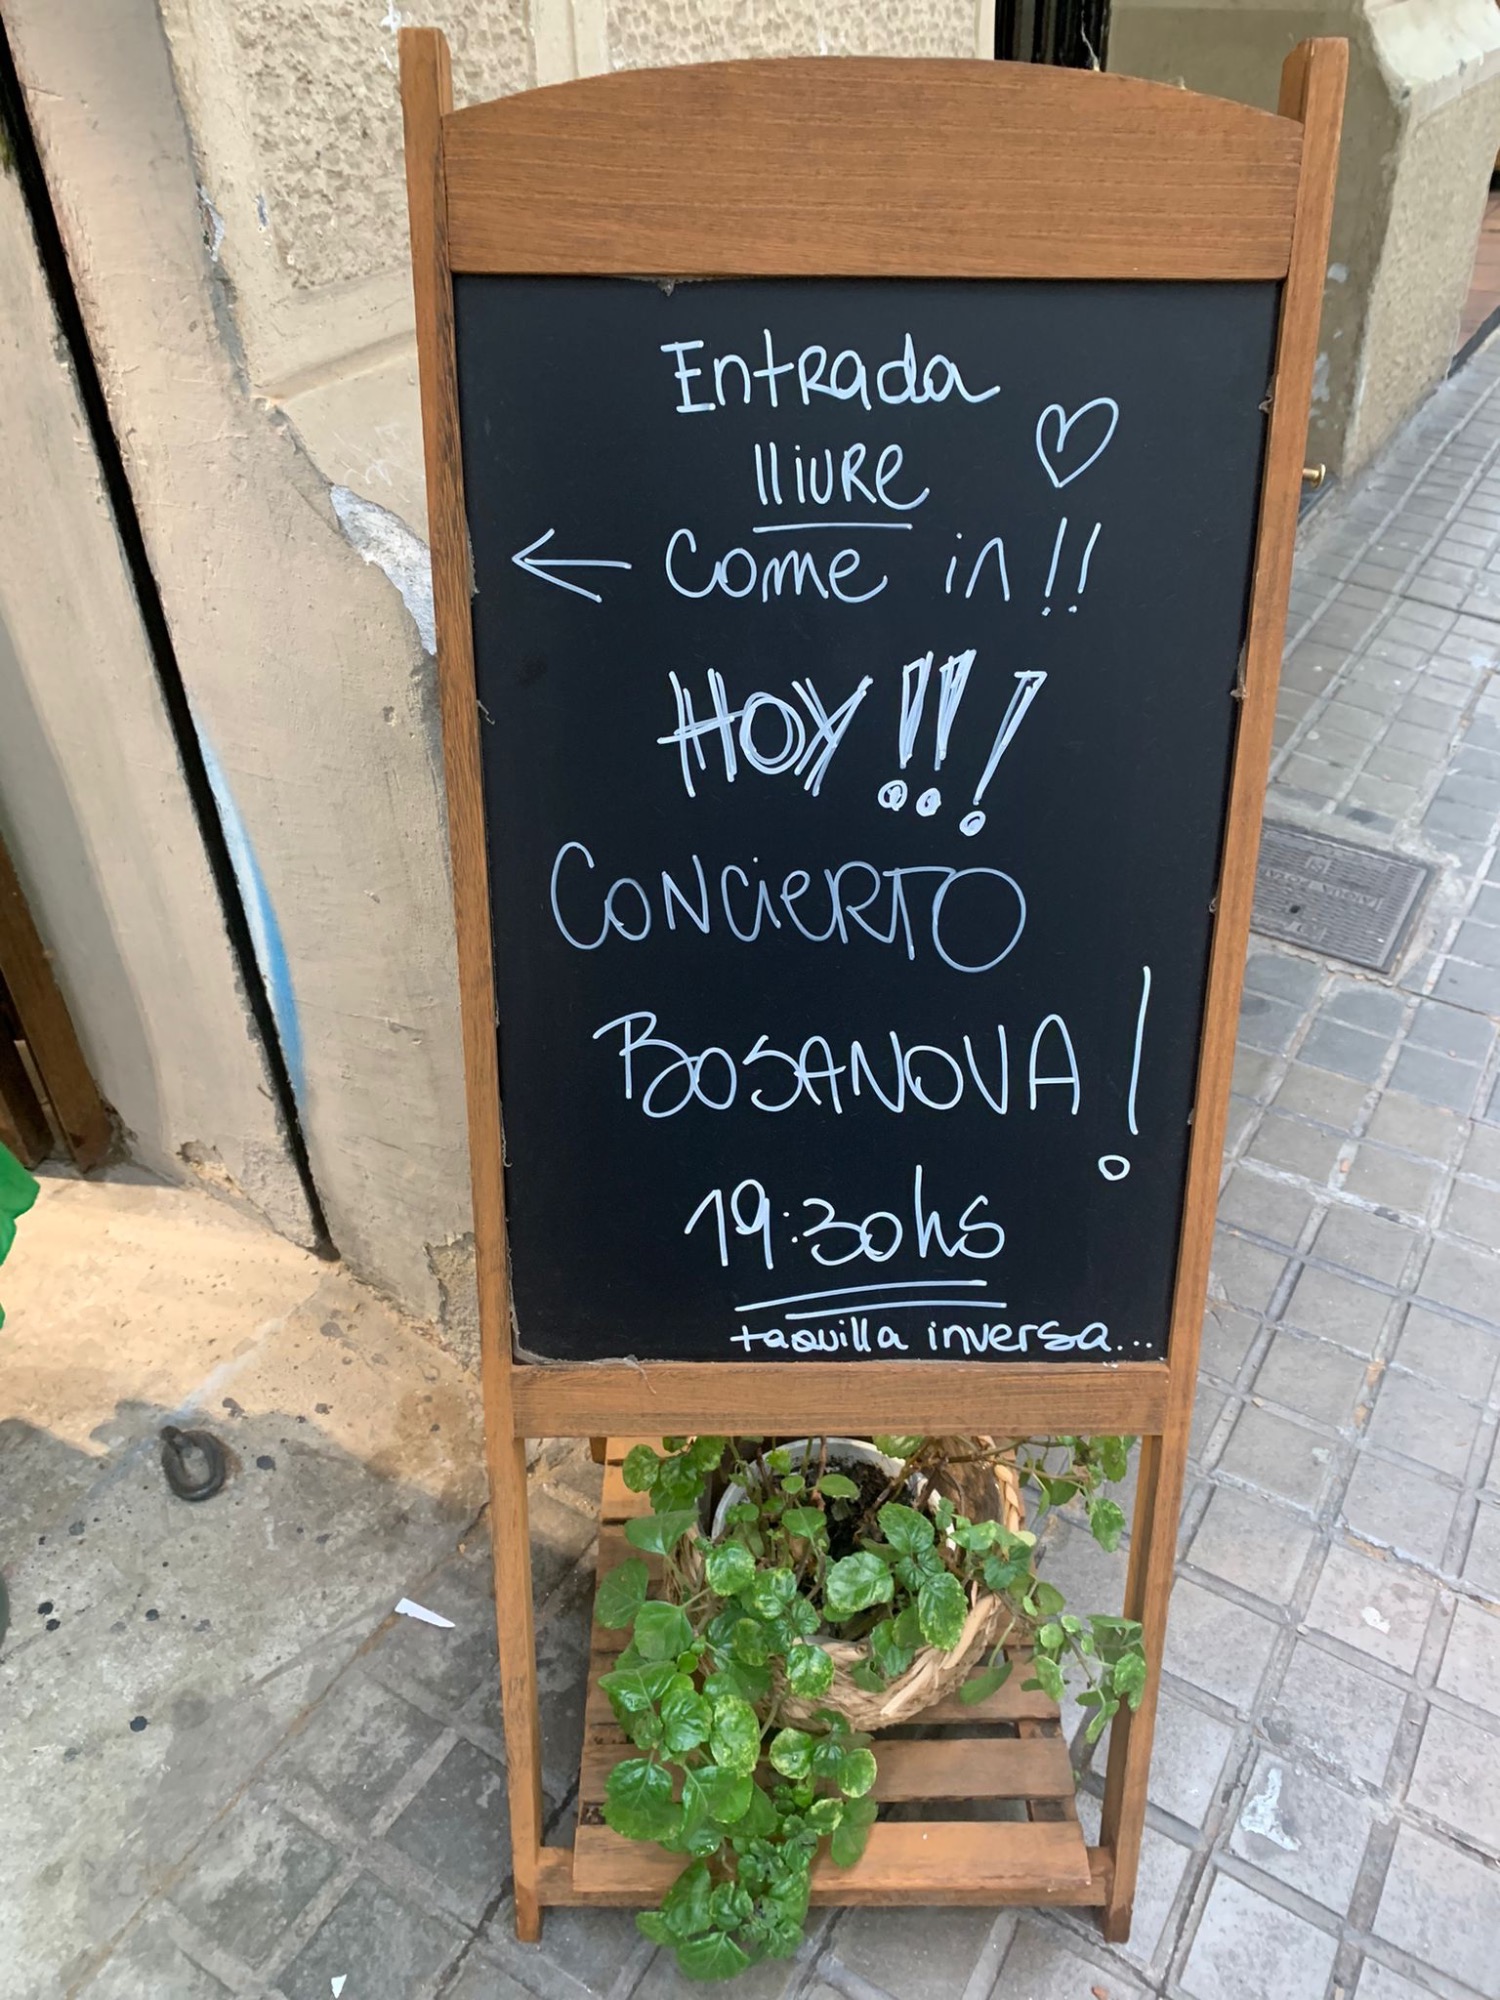 Entrada
lliure
← Come in!!
HOY!!!
CONCIERTO
BOSANOVA!
19:30hs
taquilla inversa...